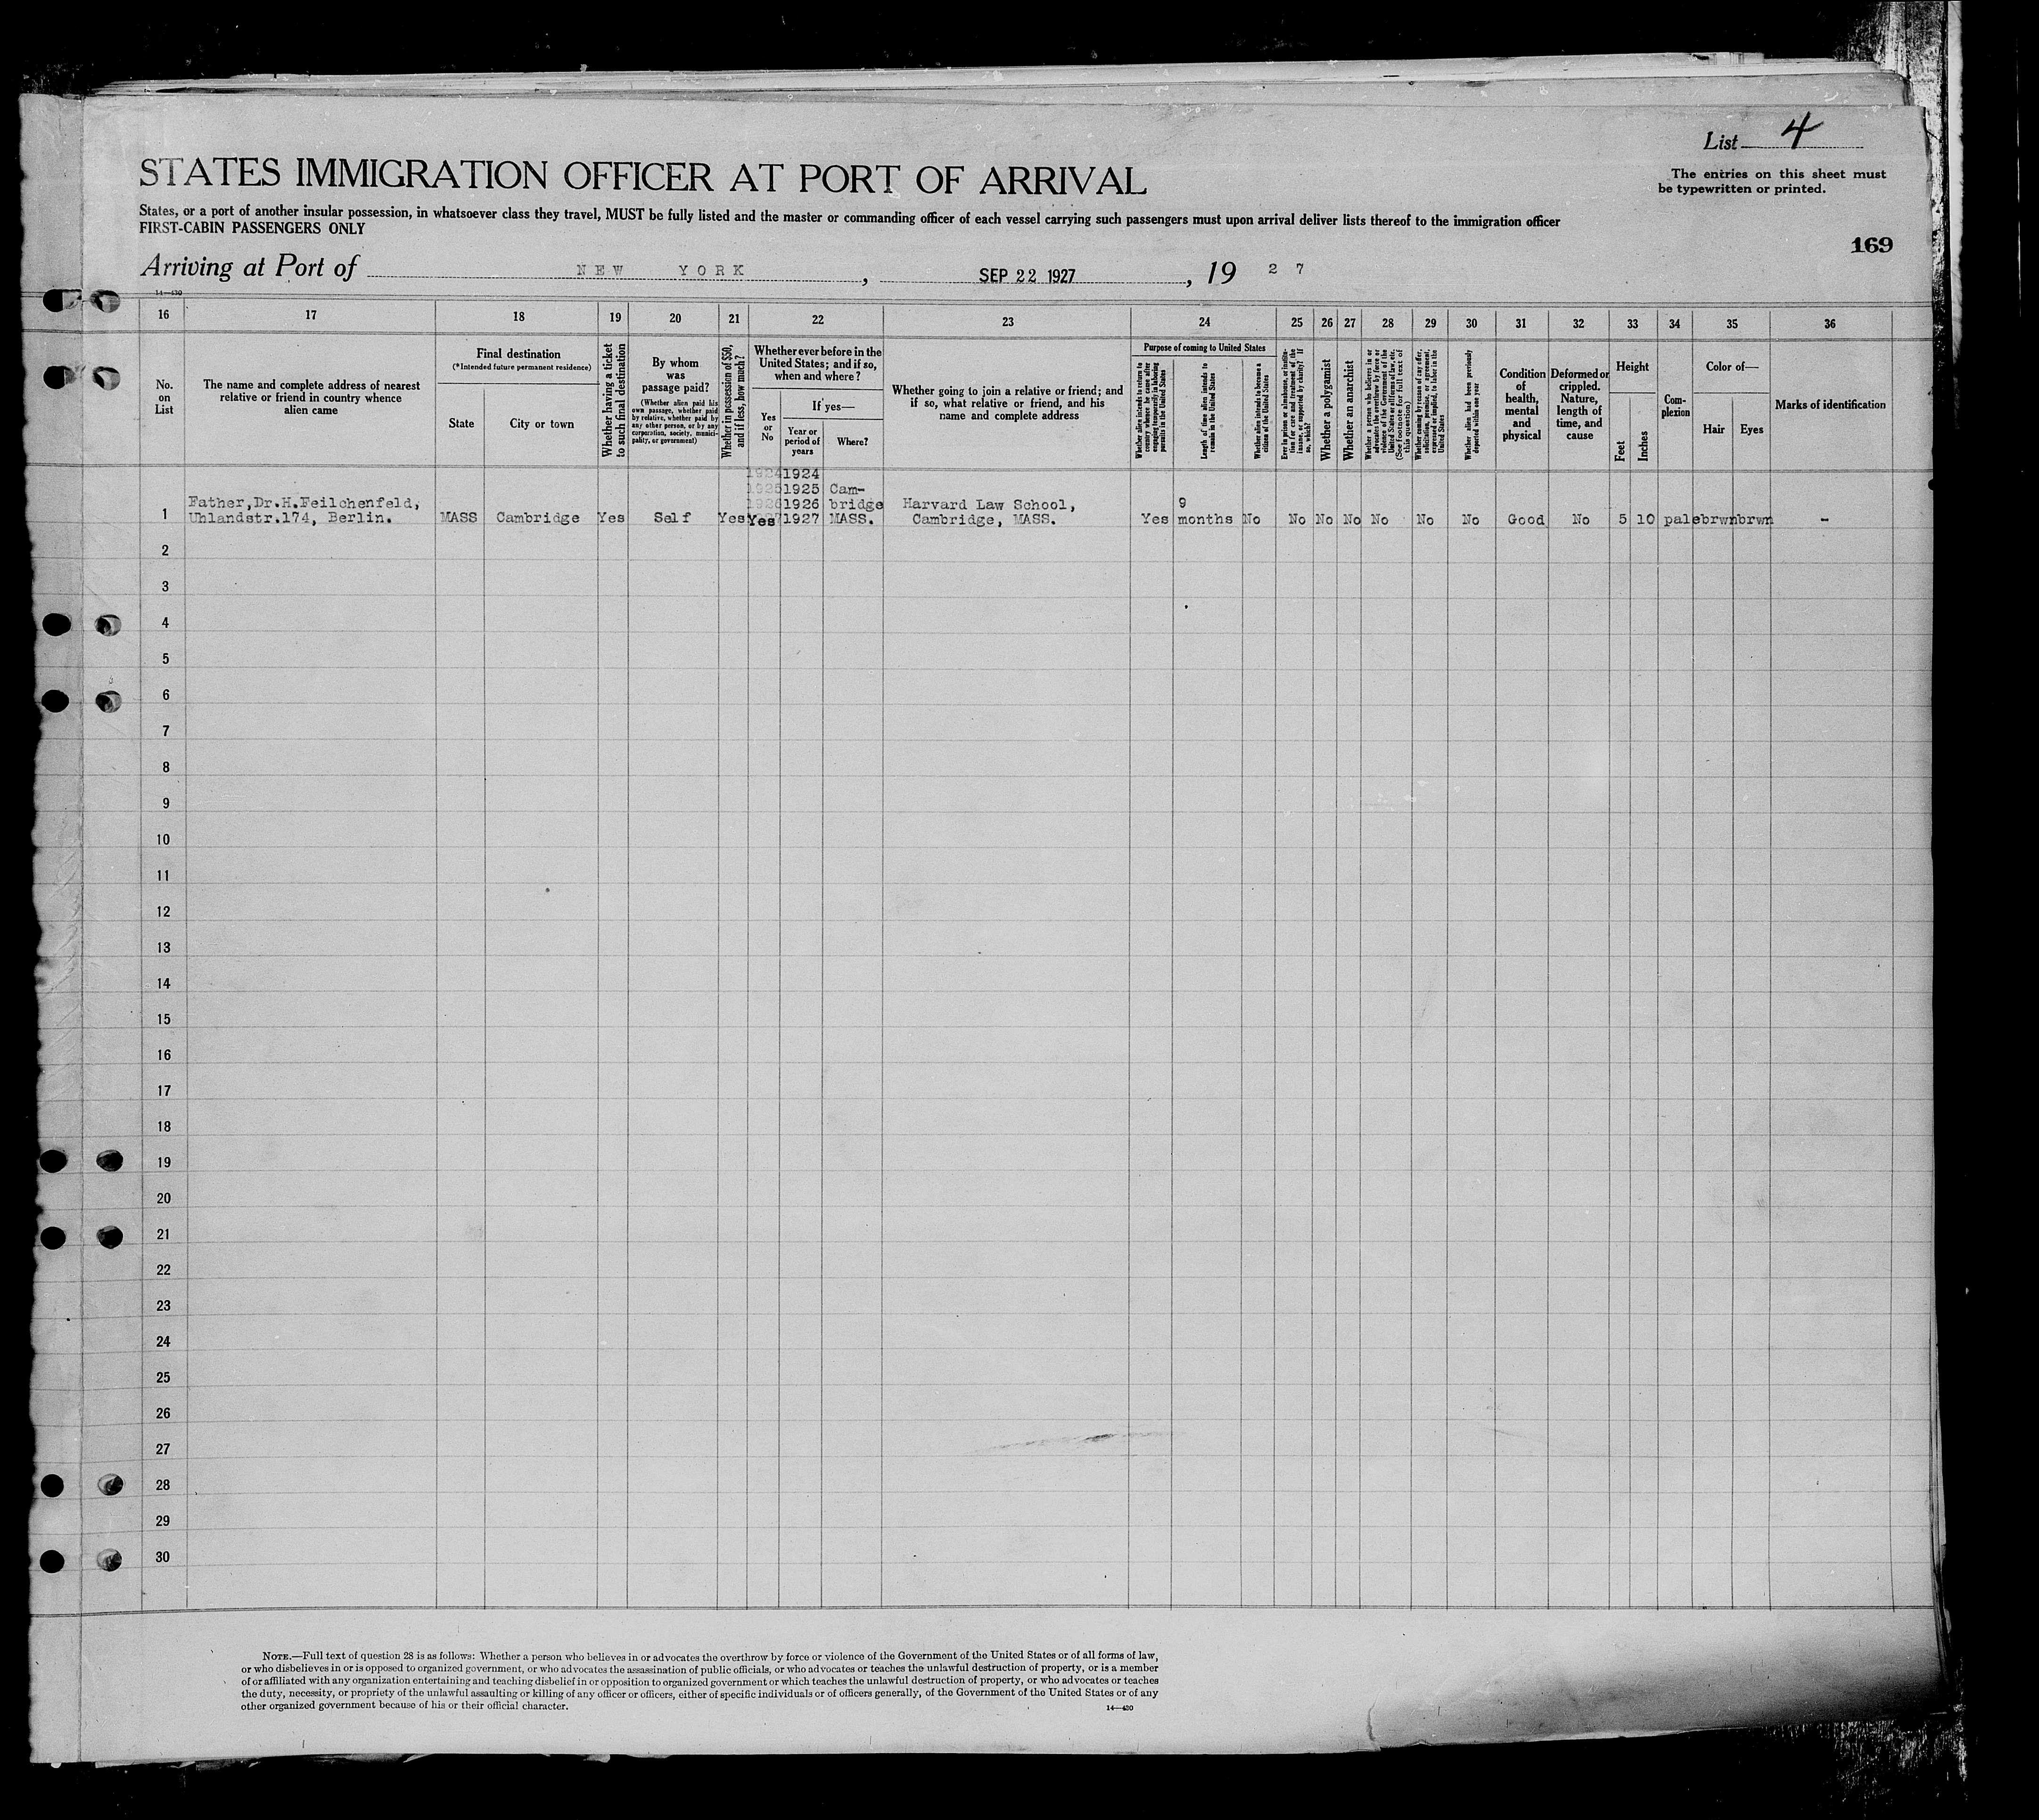 List 4
STATES IMMIGRATION OFFICER AT PORT OF ARRIVAL
The entries on this sheet must
be typewritten or printed.
States, or a port of another insular possession, in whatsoever class they travel, MUST be fully listed and the master or commanding officer of each vessel carrying such passengers must upon arrival deliver lists thereof to the immigration officer
FIRST-CABIN PASSENGERS ONLY
169
Arriving at Port of NEW YORK, SEP 22 1927, 19 27
14—430
16 17 18 19 20 21 22 23 24 25 26 27 28 29 30 31 32 33 34 35 36
No.
on
List
The name and complete address of nearest
relative or friend in country whence
alien came
Final destination
(*Intended future permanent residence)
State
City or town
Whether having a ticket
to such final destination
By whom
was
passage paid?
(Whether alien paid his
own passage, whether paid
by relative, whether paid by
any other person, or by any
corporation, society, munici-
pality, or government)
Whether in possession of $50,
and if less, how much?
Whether ever before in the
United States; and if so,
when and where?
Yes
or
No
If yes—
Year or
period of
years
Where?
Whether going to join a relative or friend; and
if so, what relative or friend, and his
name and complete address
Purpose of coming to United States
Whether alien intends to return to
country whence he came after
engaging temporarily in laboring
pursuits in the United States
Length of time alien intends to
remain in the United States
Whether alien intends to become a
citizen of the United States
Ever in prison or almshouse, or institu-
tion for care and treatment of the
insane, or supported by charity? If
so, which?
Whether a polygamist
Whether an anarchist
Whether a person who believes in or
advocates the overthrow by force or
violence of the Government of the
United States or all forms of law, etc.
(See footnote for full text of
this question)
Whether coming by reason of any offer,
solicitation, promise, or agreement,
expressed or implied, to labor in the
United States
Whether alien had been previously
deported within one year
Condition
of
health,
mental
and
physical
Deformed or
crippled.
Nature,
length of
time, and
cause
Height
Feet
Inches
Com-
plexion
Color of—
Hair
Eyes
Marks of identification
1924 1924
1925 1925 Cam-
Father,Dr.H.Feilchenfeld, 1926 1926 bridge Harvard Law School, 9
1 Uhlandstr.174, Berlin. MASS Cambridge Yes Self Yes Yes 1927 MASS. Cambridge, MASS. Yes months No No No No No No No Good No 5 10 pale brwn brwn -
2
3
4
5
6
7
8
9
10
11
12
13
14
15
16
17
18
19
20
21
22
23
24
25
26
27
28
29
30
NOTE.—Full text of question 28 is as follows: Whether a person who believes in or advocates the overthrow by force or violence of the Government of the United States or of all forms of law,
or who disbelieves in or is opposed to organized government, or who advocates the assassination of public officials, or who advocates or teaches the unlawful destruction of property, or is a member
of or affiliated with any organization entertaining and teaching disbelief in or opposition to organized government or which teaches the unlawful destruction of property, or who advocates or teaches
the duty, necessity, or propriety of the unlawful assaulting or killing of any officer or officers, either of specific individuals or of officers generally, of the Government of the United States or of any
other organized government because of his or their official character.
14—430